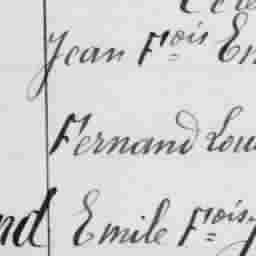 Jean Fçois
Fernand Lou
nd Emile Fçois